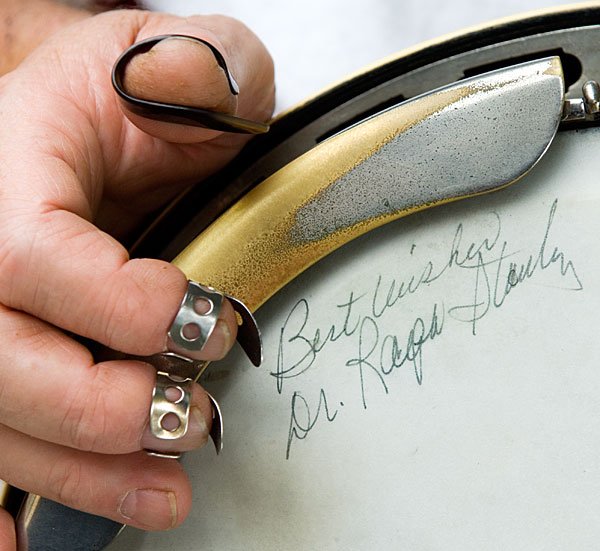 Best wishes
Dr. Ralph Stanley